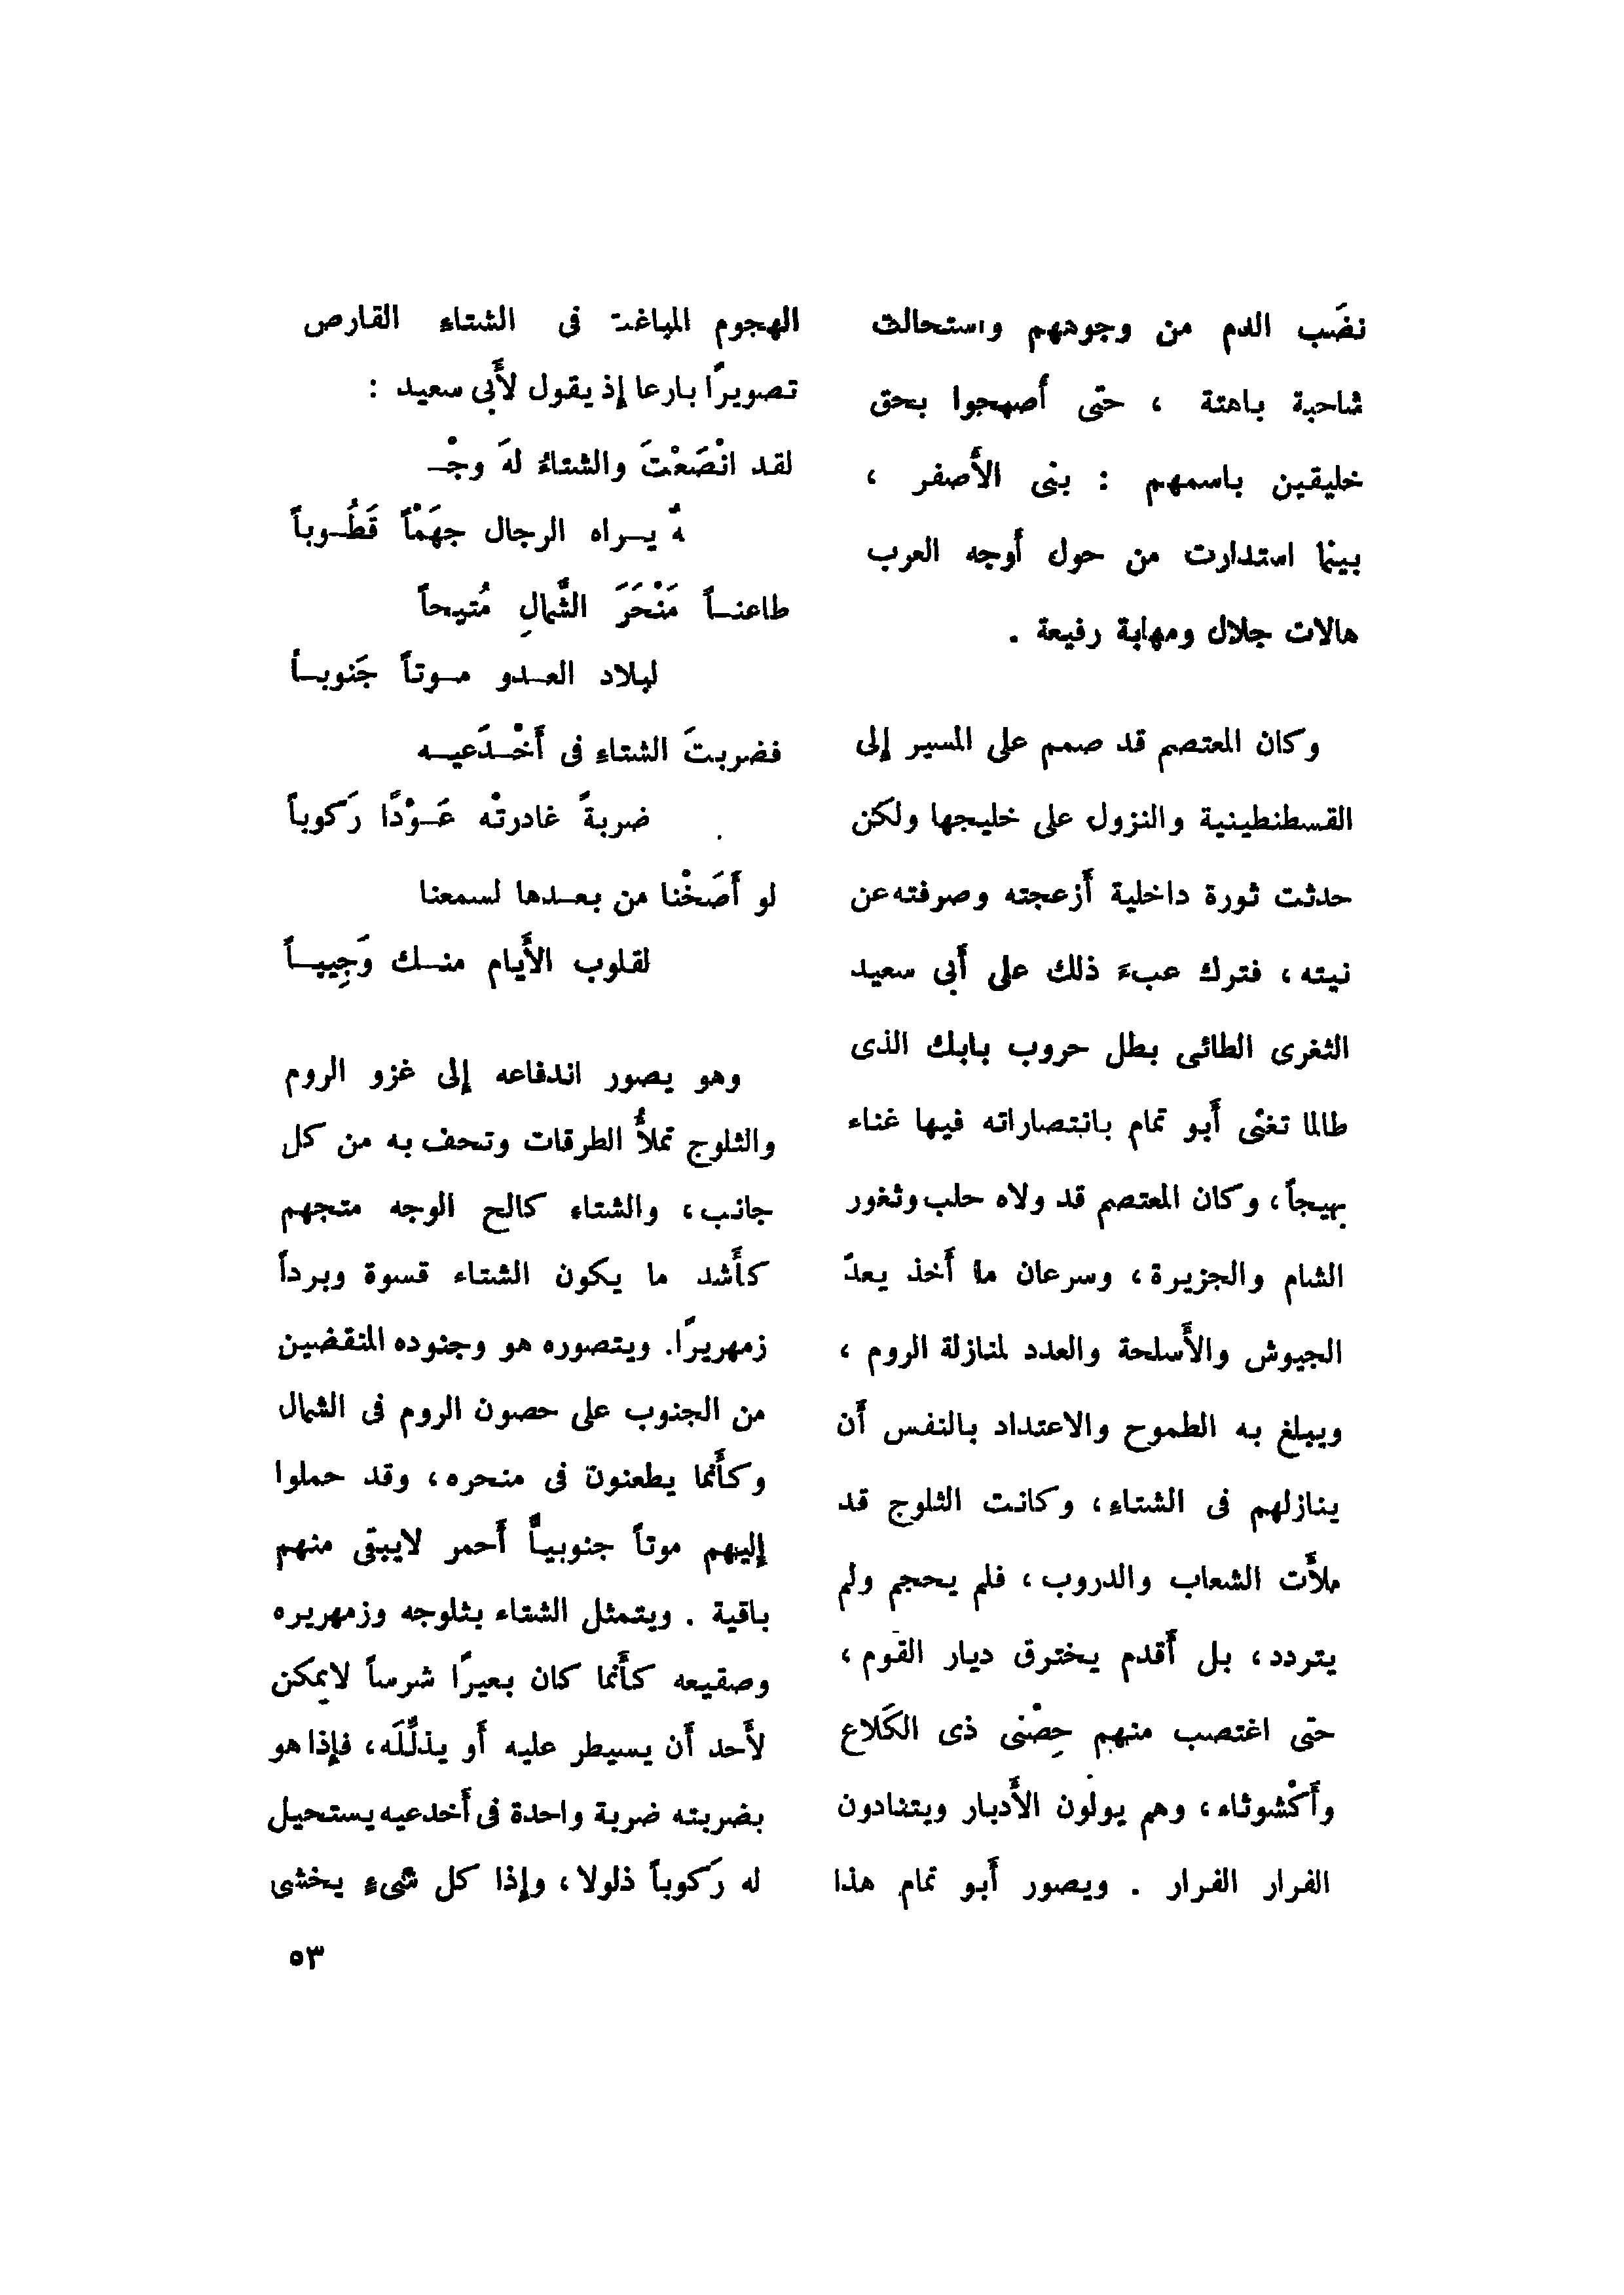 نضَب الدم من وجوههم واستحالت
شاحبة باهتة ، حتى أصبحوا بحق
خليقين باسمهم : بنى الأَصفر ،
بينما استدارت من حول أَوجه العرب
هالات جلال ومهابة رفيعة .
وكان المعتصم قد صمم على المسير إلى
القسطنطينية والنزول على خليجها ولكن
حدثت ثورة داخلية أَزعجته وصرفته عن
نيته ، فترك عبءَ ذلك على أَبى سعيد
الثغرى الطائى بطل حروب بابك الذى
طالما تغنَّى أَبو تمام بانتصاراته فيها غناء
بهيجاً ، وكان المعتصم قد ولاه حلب وثغور
الشام والجزيرة ، وسرعان ما أَخذ يعدّ
الجيوش والأَسلحة والعدد لمنازلة الروم ،
ويبلغ به الطموح والاعتداد بالنفس أَن
ينازلهم فى الشتاءِ ، وكانت الثلوج قد
ملأَت الشعاب والدروب ، فلم يحجم ولم
يتردد ، بل أَقدم يخترق ديار القوم ،
حتى اغتصب منهم حِصْنى ذى الكَلاع
وأَكْشوثاء ، وهم يولون الأَدبار ويتنادون
الفرار الفرار . ويصور أَبو تمام هذا
الهجوم المباغت فى الشتاءِ القارص
تصويرًا بارعا إذ يقول لأَبى سعيد :
لقد انْصَعْتَ والشتاءُ لهَ وجْـ
ـهٌ يـراه الرجال جهَمْاً قَطُـوباً
طاعنـاً مَنْحَرَ الشَّمالِ مُتيحاً
لبلاد العـدو مـوتاً جَنوبـاً
فضربتَ الشتاءِ فى أَخْـدَعيـه
ضربةً غادرتْه عَـوْدًا رَكوباً
لو أَصَخْنا من بعـدها لسمعنا
لقلوب الأَيام منـك وَجِيبـاً
وهو يصور اندفاعه إلى غزو الروم
والثلوج تملأُ الطرقات وتحف به من كل
جانب ، والشتاء كالح الوجه متجهم
كأَشد ما يكون الشتاء قسوة وبرداً
زمهريرًا. ويتصوره هو وجنوده المنقضين
من الجنوب على حصون الروم فى الشمال
وكأَنما يطعنون فى منحره ، وقد حملوا
إليهم موتاً جنوبيًّا أَحمر لايبقى منهم
باقية . ويتمثل الشتاء بثلوجه وزمهريره
وصقيعه كأَنما كان بعيرًا شرساً لايمكن
لأَحد أَن يسيطر عليه أَو يذلِّلَه ، فإذا هو
بضربته ضربة واحدة فى أَخدعيه يستحيل
له رَكوباً ذلولا ، وإذا كل شىءٍ يخشى
٥٣